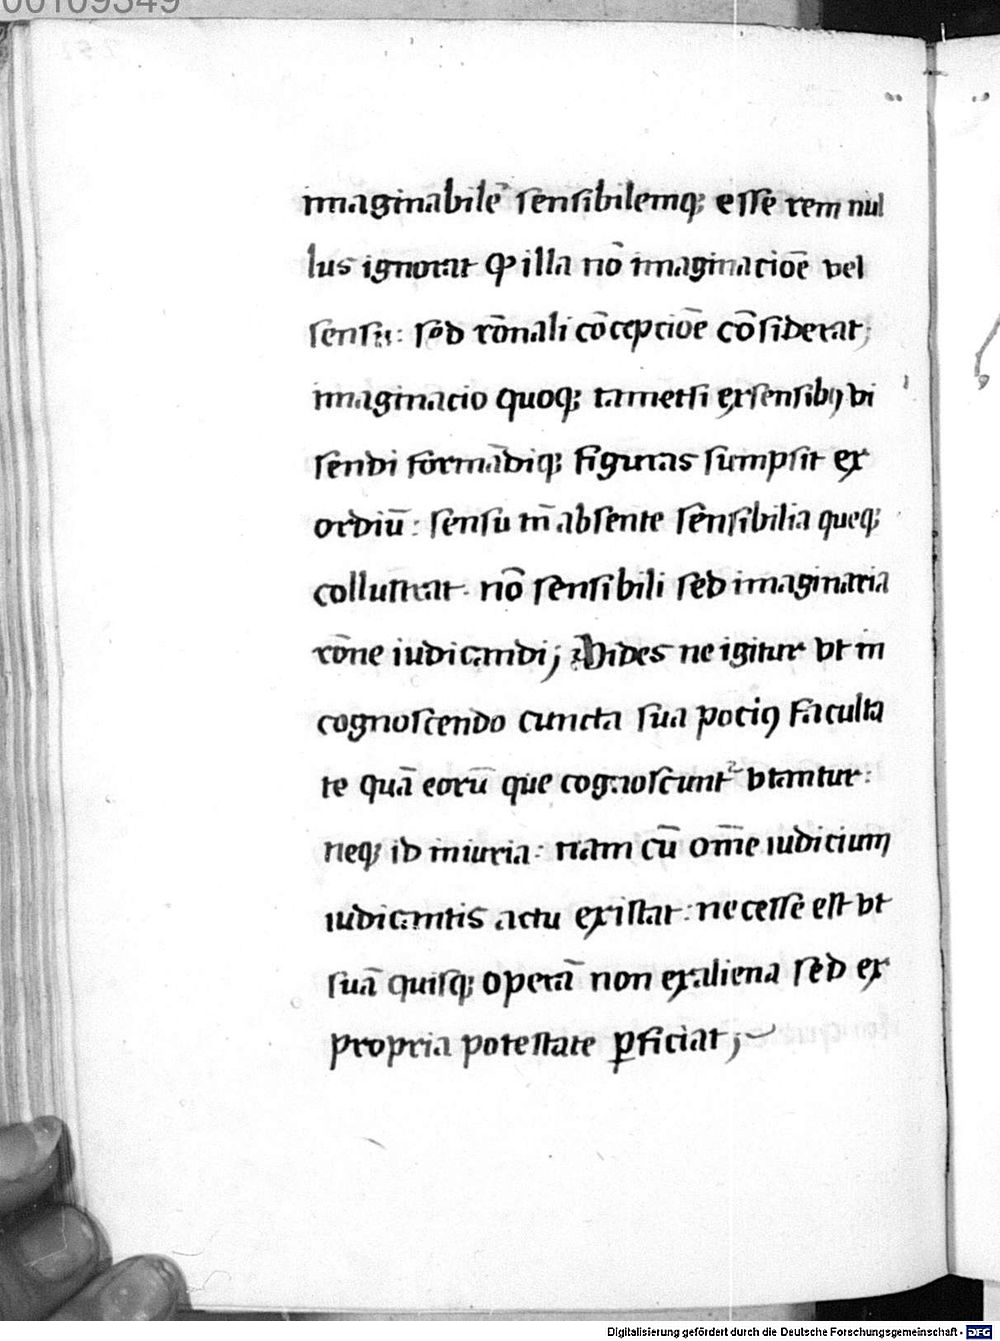 00109349
imaginabilē sensibilemq; esse rem nul
lus ignorat ꝙ illa nō imaginacioē vel
sensu: sed rōnali cōcepcioē cōsiderat;
imaginacio quoq; tametsi ex sensibꝰ vi
sendi formādiq; figuras sumpsit ex
ordiū: sensu tn̄ absente sensibilia queq;
collustrat. nō sensibili sed imaginaria
rōne iudicandi; Vides ne igitur vt in
cognoscendo cuncta sua pociꝰ faculta
te quā eorū que cognoscuntᷣ vtantur:
neq; id iniuria: nam cū om̄e iudicium
iudicantis actu existat: necesse est vt
suā quisq; operā non ex aliena sed ex
propria potestate ꝑficiat;
Digitalisierung gefördert durch die Deutsche Forschungsgemeinschaft - DFG